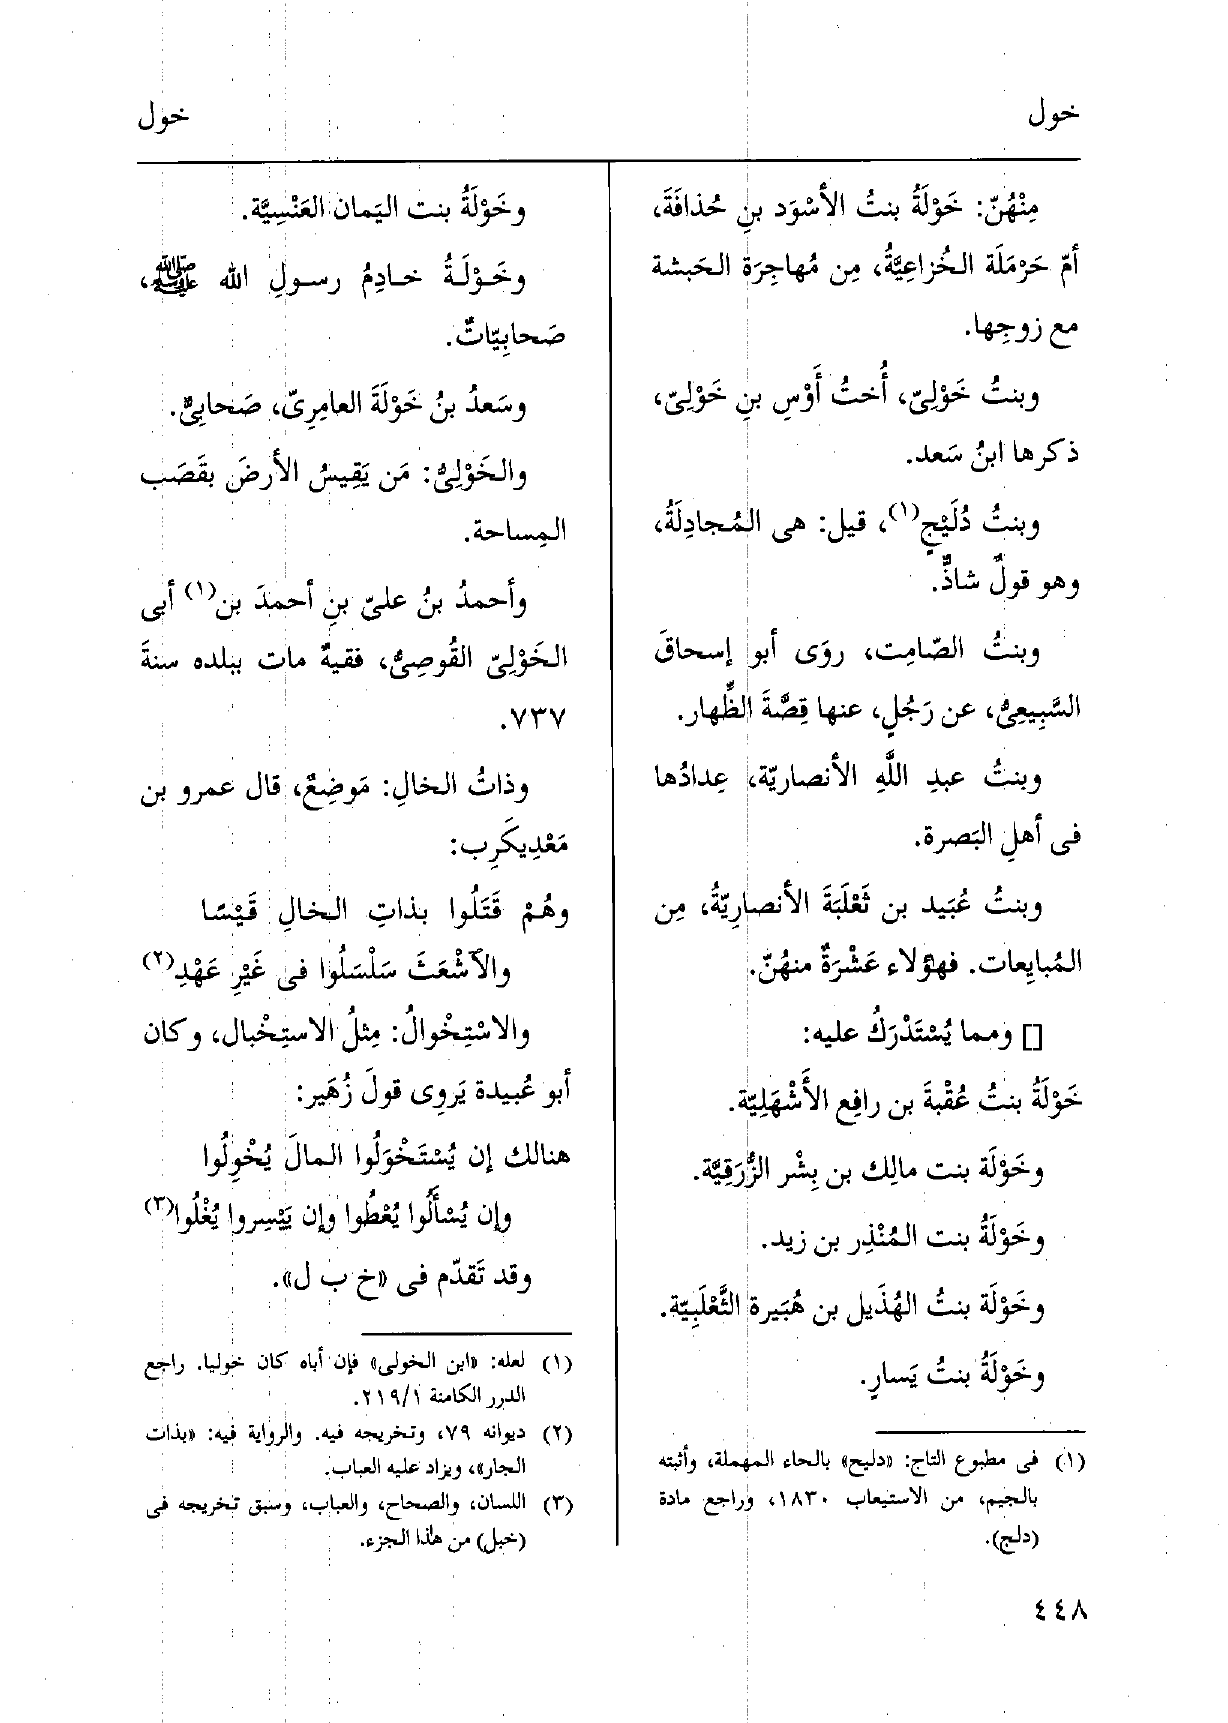 خول
خول
مِنْهُنّ: خَوْلَةُ بنتُ الأسْوَد بنِ حُذافَةَ،
أمّ حَرْمَلَة الخُزاعِيَّةُ، مِن مُهاجِرَة الحَبشة
مع زوجِها.
وبنتُ خَوْلِىّ، أُختُ أَوْسِ بنِ خَوْلِىّ،
ذكرها ابنُ سَعد.
وبنتُ دُلَيْجٍ(١)، قيل: هى المُجادِلَةُ،
وهو قولٌ شاذٌّ.
وبنتُ الصّامِت، روَى أبو إسحاقَ
السَّبِيعِىُّ، عن رَجُلٍ، عنها قِصَّةَ الظِّهار.
وبنتُ عبدِ اللَّهِ الأنصاريّة، عِدادُها
فى أهلِ البَصرة.
وبنتُ عُبَيد بن ثَعْلَبَةَ الأنصارِيّةُ، مِن
المُبايِعات. فهؤلاء عَشْرَةٌ منهُنّ.
[] ومما يُسْتَدْرَكُ عليه:
خَوْلَةُ بنتُ عُقْبةَ بن رافِع الأَشْهَلِيّة.
وخَوْلَة بنت مالِك بن بِشْر الزُّرَقِيَّة.
وخَوْلَةُ بنت المُنْذِر بن زيد.
وخَوْلَة بنتُ الهُذَيل بن هُبَيرة الثَّعْلَبِيّة.
وخَوْلَةُ بنتُ يَسارٍ.
(١) فى مطبوع التاج: «دليح» بالحاء المهملة، وأثبته
بالجيم، من الاستيعاب ١٨٣٠، وراجع مادة
(دلج).
وخَوْلَةُ بنت اليَمان العَنْسِيَّة.
وخَوْلَةُ خادِمُ رسولِ الله ﷺ،
صَحابِيّاتٌ.
وسَعدُ بنُ خَوْلَةَ العامِرِىّ، صَحابِىٌّ.
والخَوْلِىُّ: مَن يَقِيسُ الأرضَ بقَصَب
المِساحة.
وأحمدُ بنُ علىّ بنِ أحمدَ بن(١) أبى
الخَوْلِىّ القُوصِىُّ، فقيهٌ مات ببلده سنةَ
٧٣٧.
وذاتُ الخالِ: مَوضِعٌ، قال عمرو بن
مَعْدِيكَرِب:
وهُمْ قَتَلُوا بذاتِ الخالِ قَيْسًا
والآشْعَثَ سَلْسَلُوا فى غَيْرِ عَهْدِ(٢)
والاسْتِخْوالُ: مِثلُ الاستِخْبال، وكان
أبو عُبيدة يَروِى قولَ زُهَير:
هنالك إن يُسْتَخْوَلُوا المالَ يُخْوِلُوا
وإن يُسْأَلُوا يُعْطُوا وإن يَيْسِروا يُغْلُوا(٣)
وقد تَقدّم فى «خ ب ل».
(١) لعله: «ابن الخولى» فإن أباه كان خوليا. راجع
الدرر الكامنة ٢١٩/١.
(٢) ديوانه ٧٩، وتخريجه فيه. والرواية فيه: «بذات
الجار»، ويزاد عليه العباب.
(٣) اللسان، والصحاح، والعباب، وسبق تخريجه فى
(خبل) من هٰذا الجزء.
٤٤٨